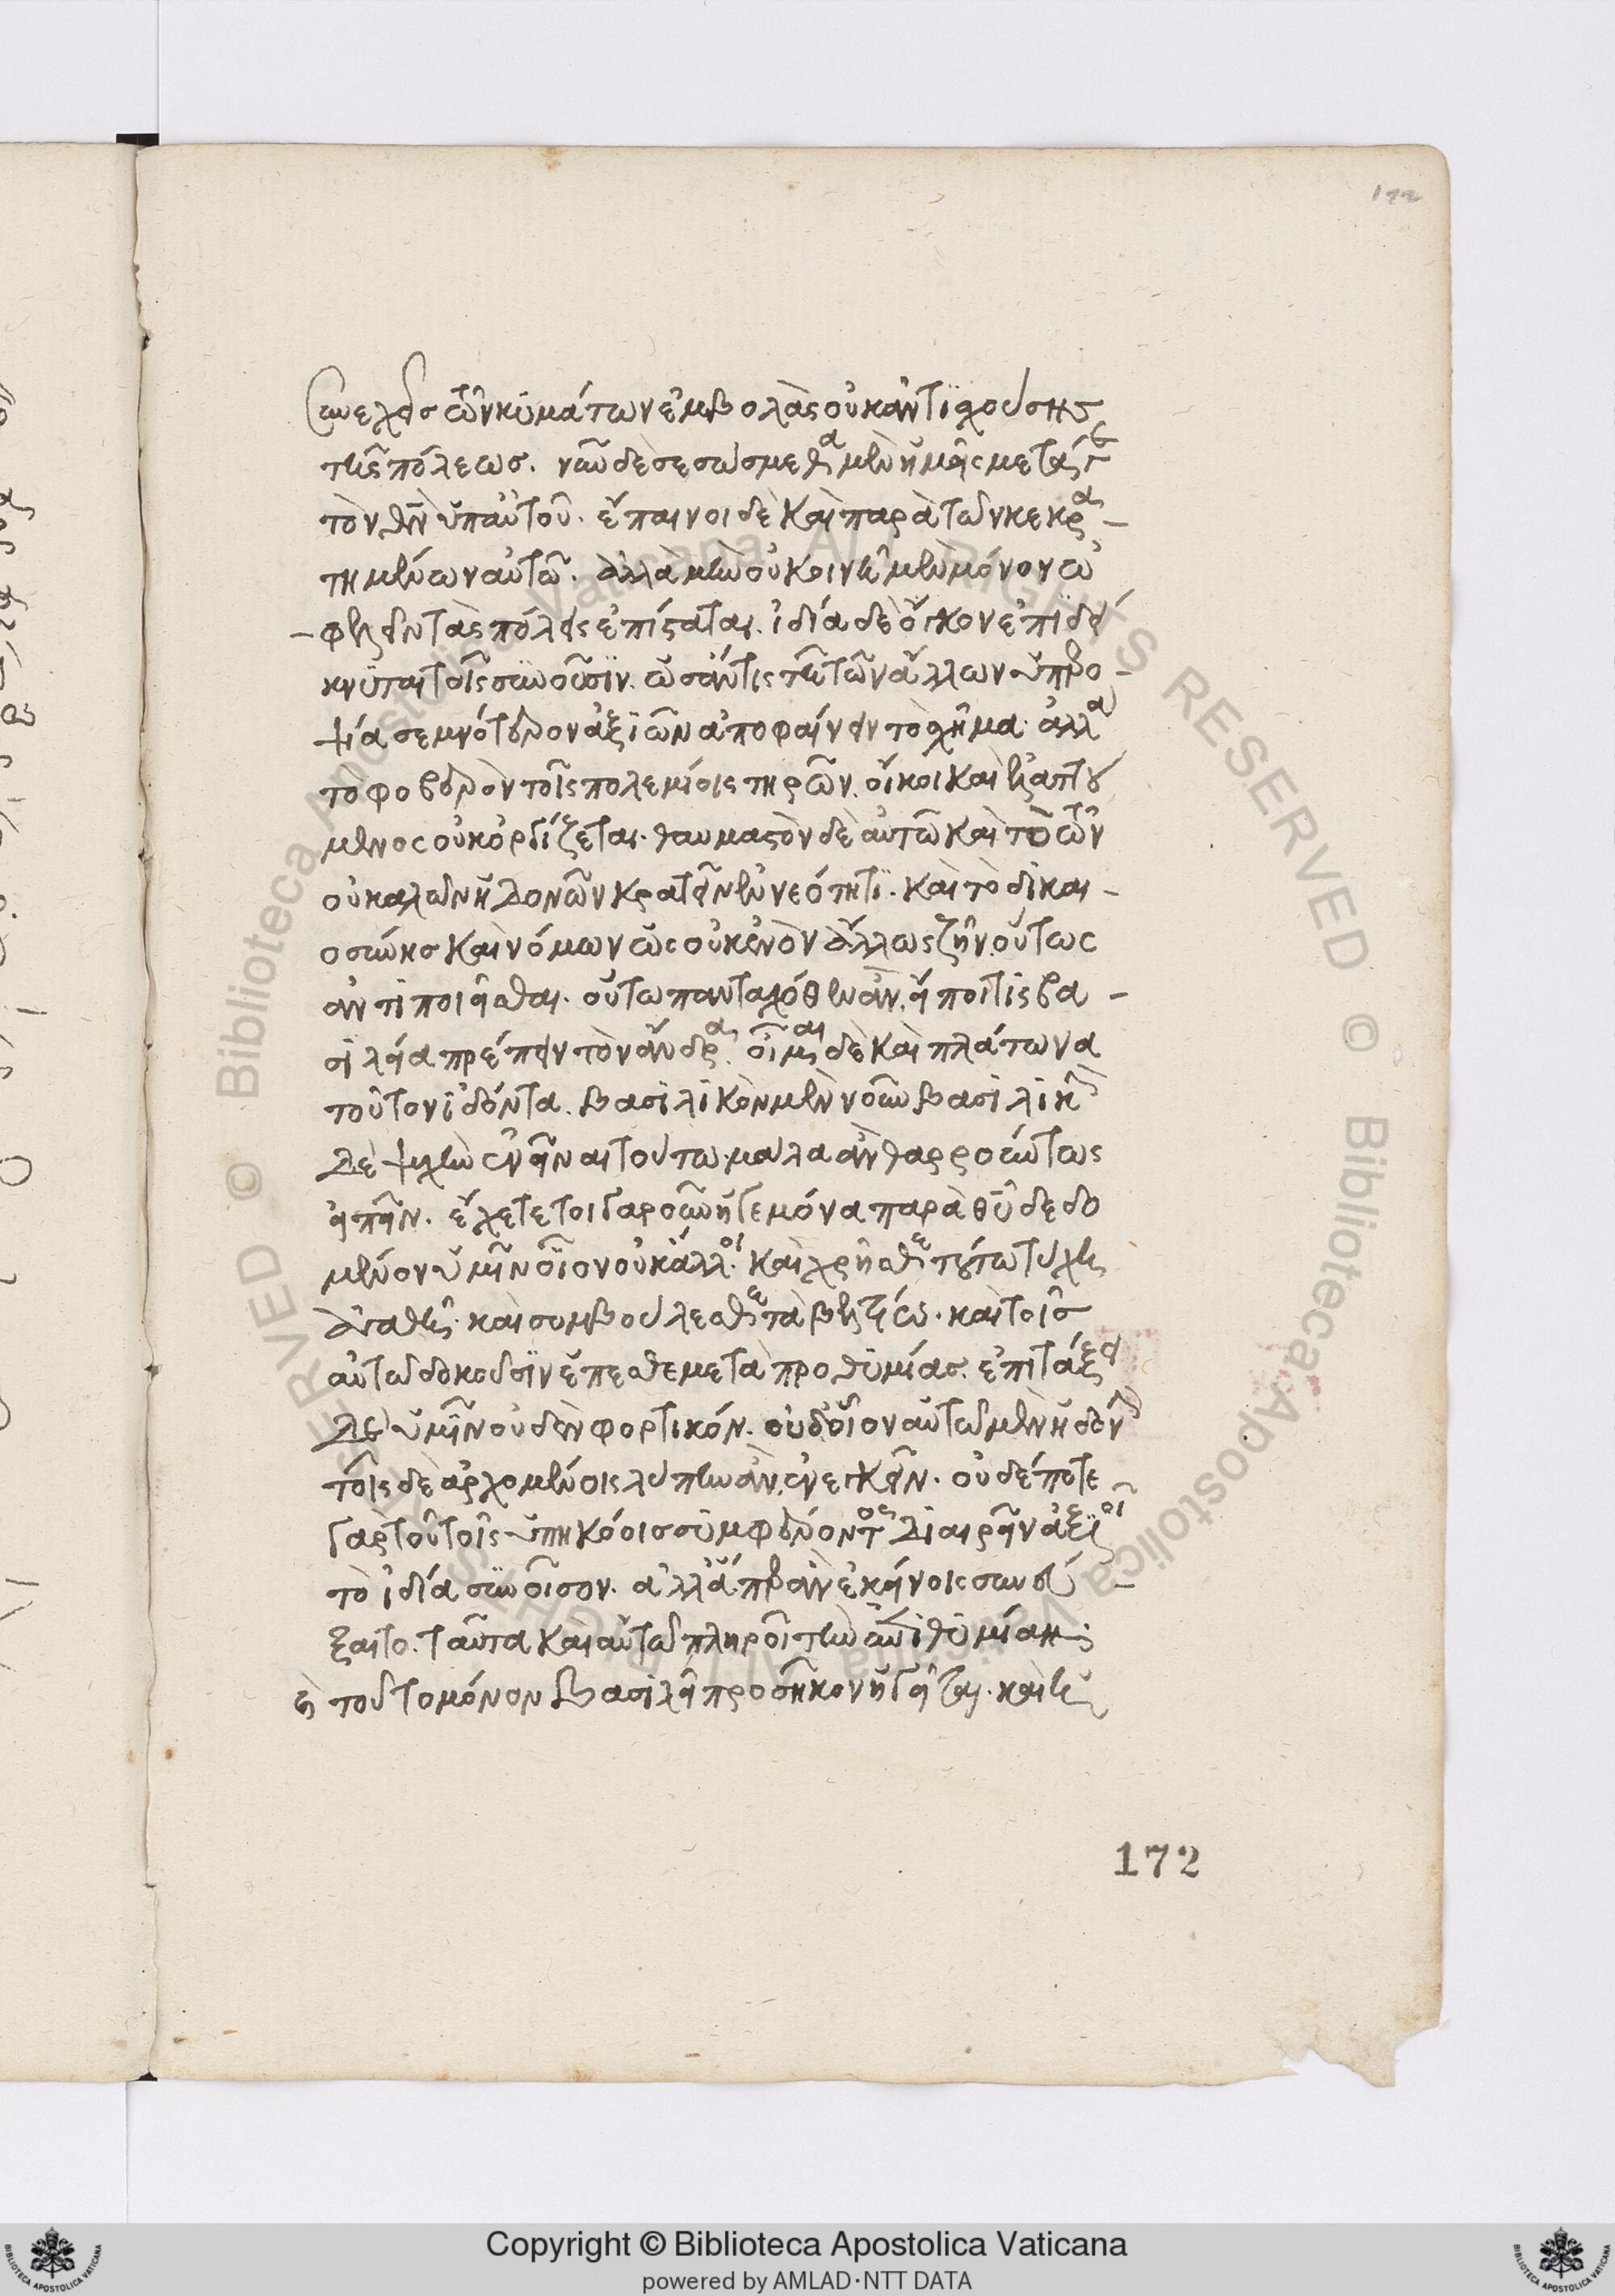 172
συνεχεῖς τῶν κυμάτων ἐμβολὰς οὐκ ἀντισχούσης
τῆς πόλεως. νῦν δὲ σεσώσμεθα μὲν ἡμεῖς μετὰ
τὸν θν ὑπ αὐτοῦ. ἔπαινοι δὲ καὶ παρὰ τῶν κεκρα-
τημένων αὐτῶ. ἀλλὰ μὴν οὐ κοινῆ μὲν μόνον ὠ
φελεῖν τὰς πόλεις ἐπίσταται. ἰδία δὲ ὄκνον ἐπιδεί
κνυται τοῖς συνοῦσιν. ὡσάν τις τῆ τῶν ἄλλων ὑπερο-
ψία σεμνότερον ἀξιῶν ἀποφαίνειν τὸ σχῆμα. ἀλλὰ
τὸ φοβερὸν τοῖς πολεμίοις τηρῶν. οἴκοι καὶ
μενος οὐκ ὀργίζεται. θαυμαστὸν δὲ αὐτῶ καὶ τὸ τῶν
οὐ καλῶν ἡδονῶν κρατεῖν ἐν νεότητι. καὶ τὸ δικαι-
οσύνης καὶ νόμων ὡς οὐκ ἐνὸν ἄλλως ζῆν οὕτως
ἀντιποιεῖσθαι. οὕτω πανταχόθεν ἂν εἴποι τις βα-
σιλεία πρέπειν τὸν ἄνδρα. οἶμαι δὲ καὶ πλάτωνα
τοῦτον ἰδόντα. βασιλικὸν μὲν νοῦν βασιλικὴν
δὲ ψυχὴν ἐνεῖναι τούτω μάλα ἂν θαρρούντως
εἰπεῖν. ἔχετε τοιγαροῦν ἡγεμόνα παρὰ θῦ δεδο
μένον ὑμῖν οἷον οὐκ ἄλλοι. καὶ χρῆσθε τούτω τύχης
ἀγαθῆς. καὶ συμβούλεσθε τὰ βελτίω. καὶ τοῖς
αὐτῶ δοκοῦσιν ἕπεσθε μετὰ προθυμίας. ἐπιτάξει
δὲ ὑμῖν οὐδὲν φορτικόν. οὐδ οἷον αὐτῶ μὲν ἡδονὴν
τοῖς δὲ ἀρχομένοις λύπην ἂν ἐνεγκεῖν. οὐδέποτε
γὰρ τοῦ τοῖς ὑπηκόοις συμφέροντος διαιρεῖν ἀξιοῖ
τὸ ἰδία συνοῖσον. ἀλλ ἅπερ ἂν ἐκείνοις συνεύ-
ξαιτο. ταῦτα καὶ αὐτῶ πληροῖ τὴν ἐπιθυμίαν.
τοῦτο μόνον βασιλεῖ προσῆκον ἡγεῖται. καὶ
172
Copyright © Biblioteca Apostolica Vaticana
powered by AMLAD·NTT DATA